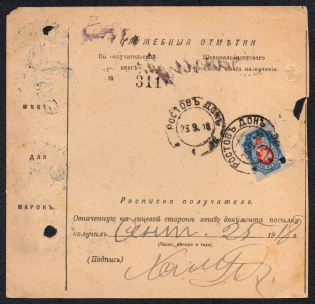 СЛУЖЕБНЫЯ ОТМѢТКИ
По получательской
Штемпель почтового
книгѣ
мѣста назначенія.
№ 311
МѢСТО
ДЛЯ
МАРОКЪ.
РОСТОВЪ ДОНЪ
23.9.18
РОСТОВЪ ДОНЪ
Росписка получателя.
Означенную на лицевой сторонѣ этого документа посылку
получилъ Сент. 25 1918 г.
(Число, мѣсяцъ и годъ).
(Подпись)